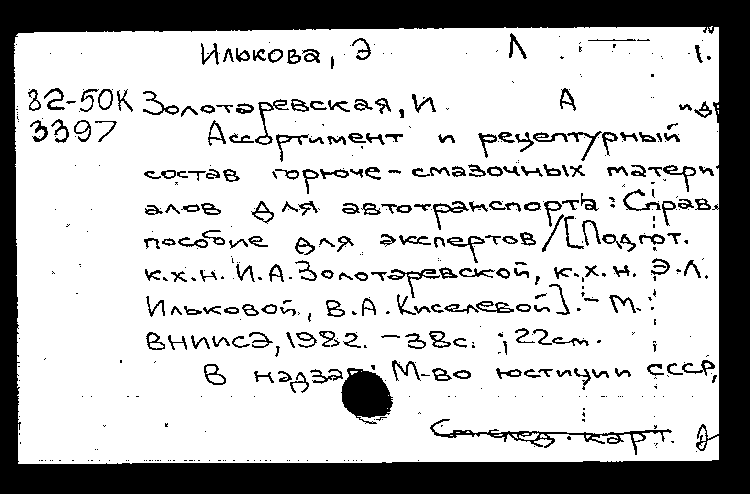 Илькова, Э Л 1.
82-50К Золотаревская, И А и др
3397 Ассортимент и рецептурный
состав горюче-смазочных матери
алов для автотранспорта: Справ.
пособие для экспертов/[Подгот.
к.х.н. И.А.Золотаревской, к.х.н. Э.Л.
Ильковой, В.А.Киселевой].- М.:
ВНИИСЭ, 1982. -38с. ; 22см.
В надзаг: М-во юстиции СССР,
См.след. карт. 2